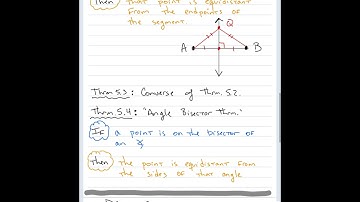 Then that point is equidistant
from the endpoints of
the segment.
Q
A B
Thrm 5.3: Converse of Thrm. 5.2.
Thrm. 5.4: "Angle Bisector Thrm."
If a point is on the bisector of
an ∡
then the point is equidistant from
the sides of that angle